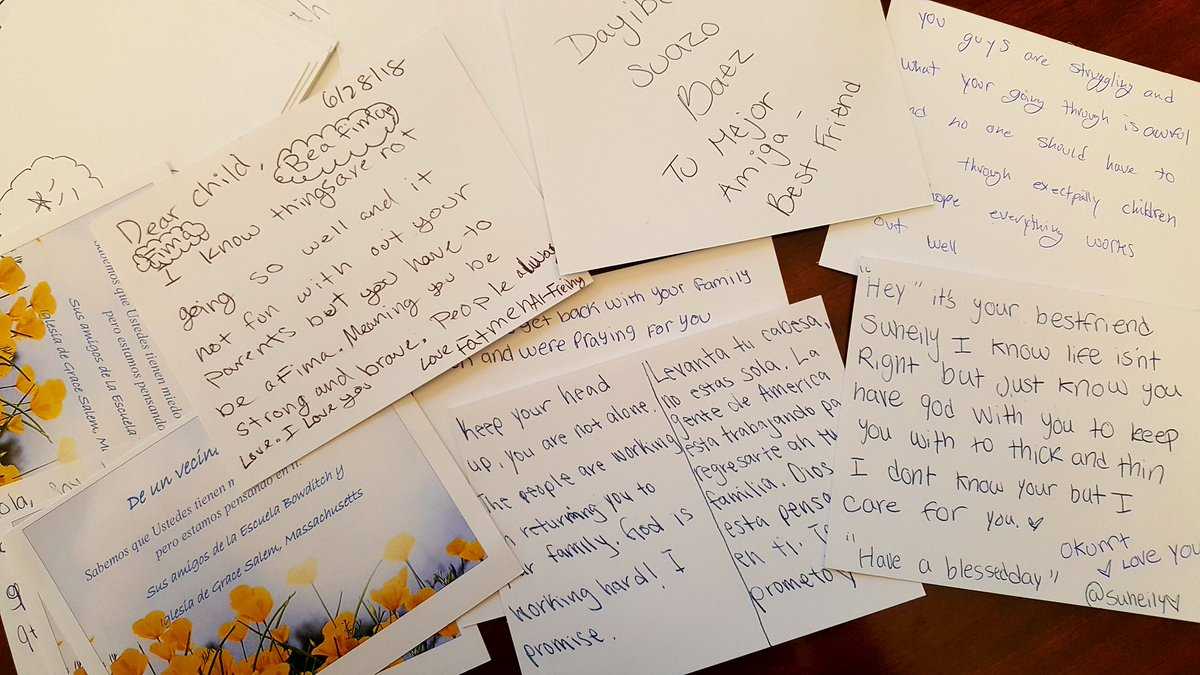 th
6/28/18
Dear child,
Be a Fima
Fima
I know things are not
going so well and it
not fun with out your
parents but you have to
be a Fima. Meaning you be
strong and brave. People always
Love. I Love you
Love Fatmeh Al-
Dayib
Suazo
Baez
Tu Mejor
Amiga -
Best Friend
you
guys are struggling and
what your going through is awful
no one should have to
through exectpally children
hope everything works
out well
get back with your Family
and were Praying For you
Keep your head
up, you are not alone.
The people are working
returning you to
family. God is
working hard! I
promise.
Levanta tu cabesa,
no estas sola. La
gente de America
esta trabajando pa
regresarte ah tu
familia. Dios
esta pensa
en ti. 
prometo
"Hey" it's your bestfriend
Suheily I know life isnt
Right but just know you
have god with you to keep
you with to thick and thin
I dont know your but I
care for you.
"Have a blessedday"
Okurrt
I Love you
@suheily
De un vecin
Sabemos que Ustedes tienen
pero estamos pensando en
Sus amigos de la Escuela Bowditch y
Iglesia de Grace Salem, Massachusetts
Sabemos que Ustedes tienen miedo
pero estamos pensando
Sus amigos de la Escuela
Iglesia de Grace Salem, M